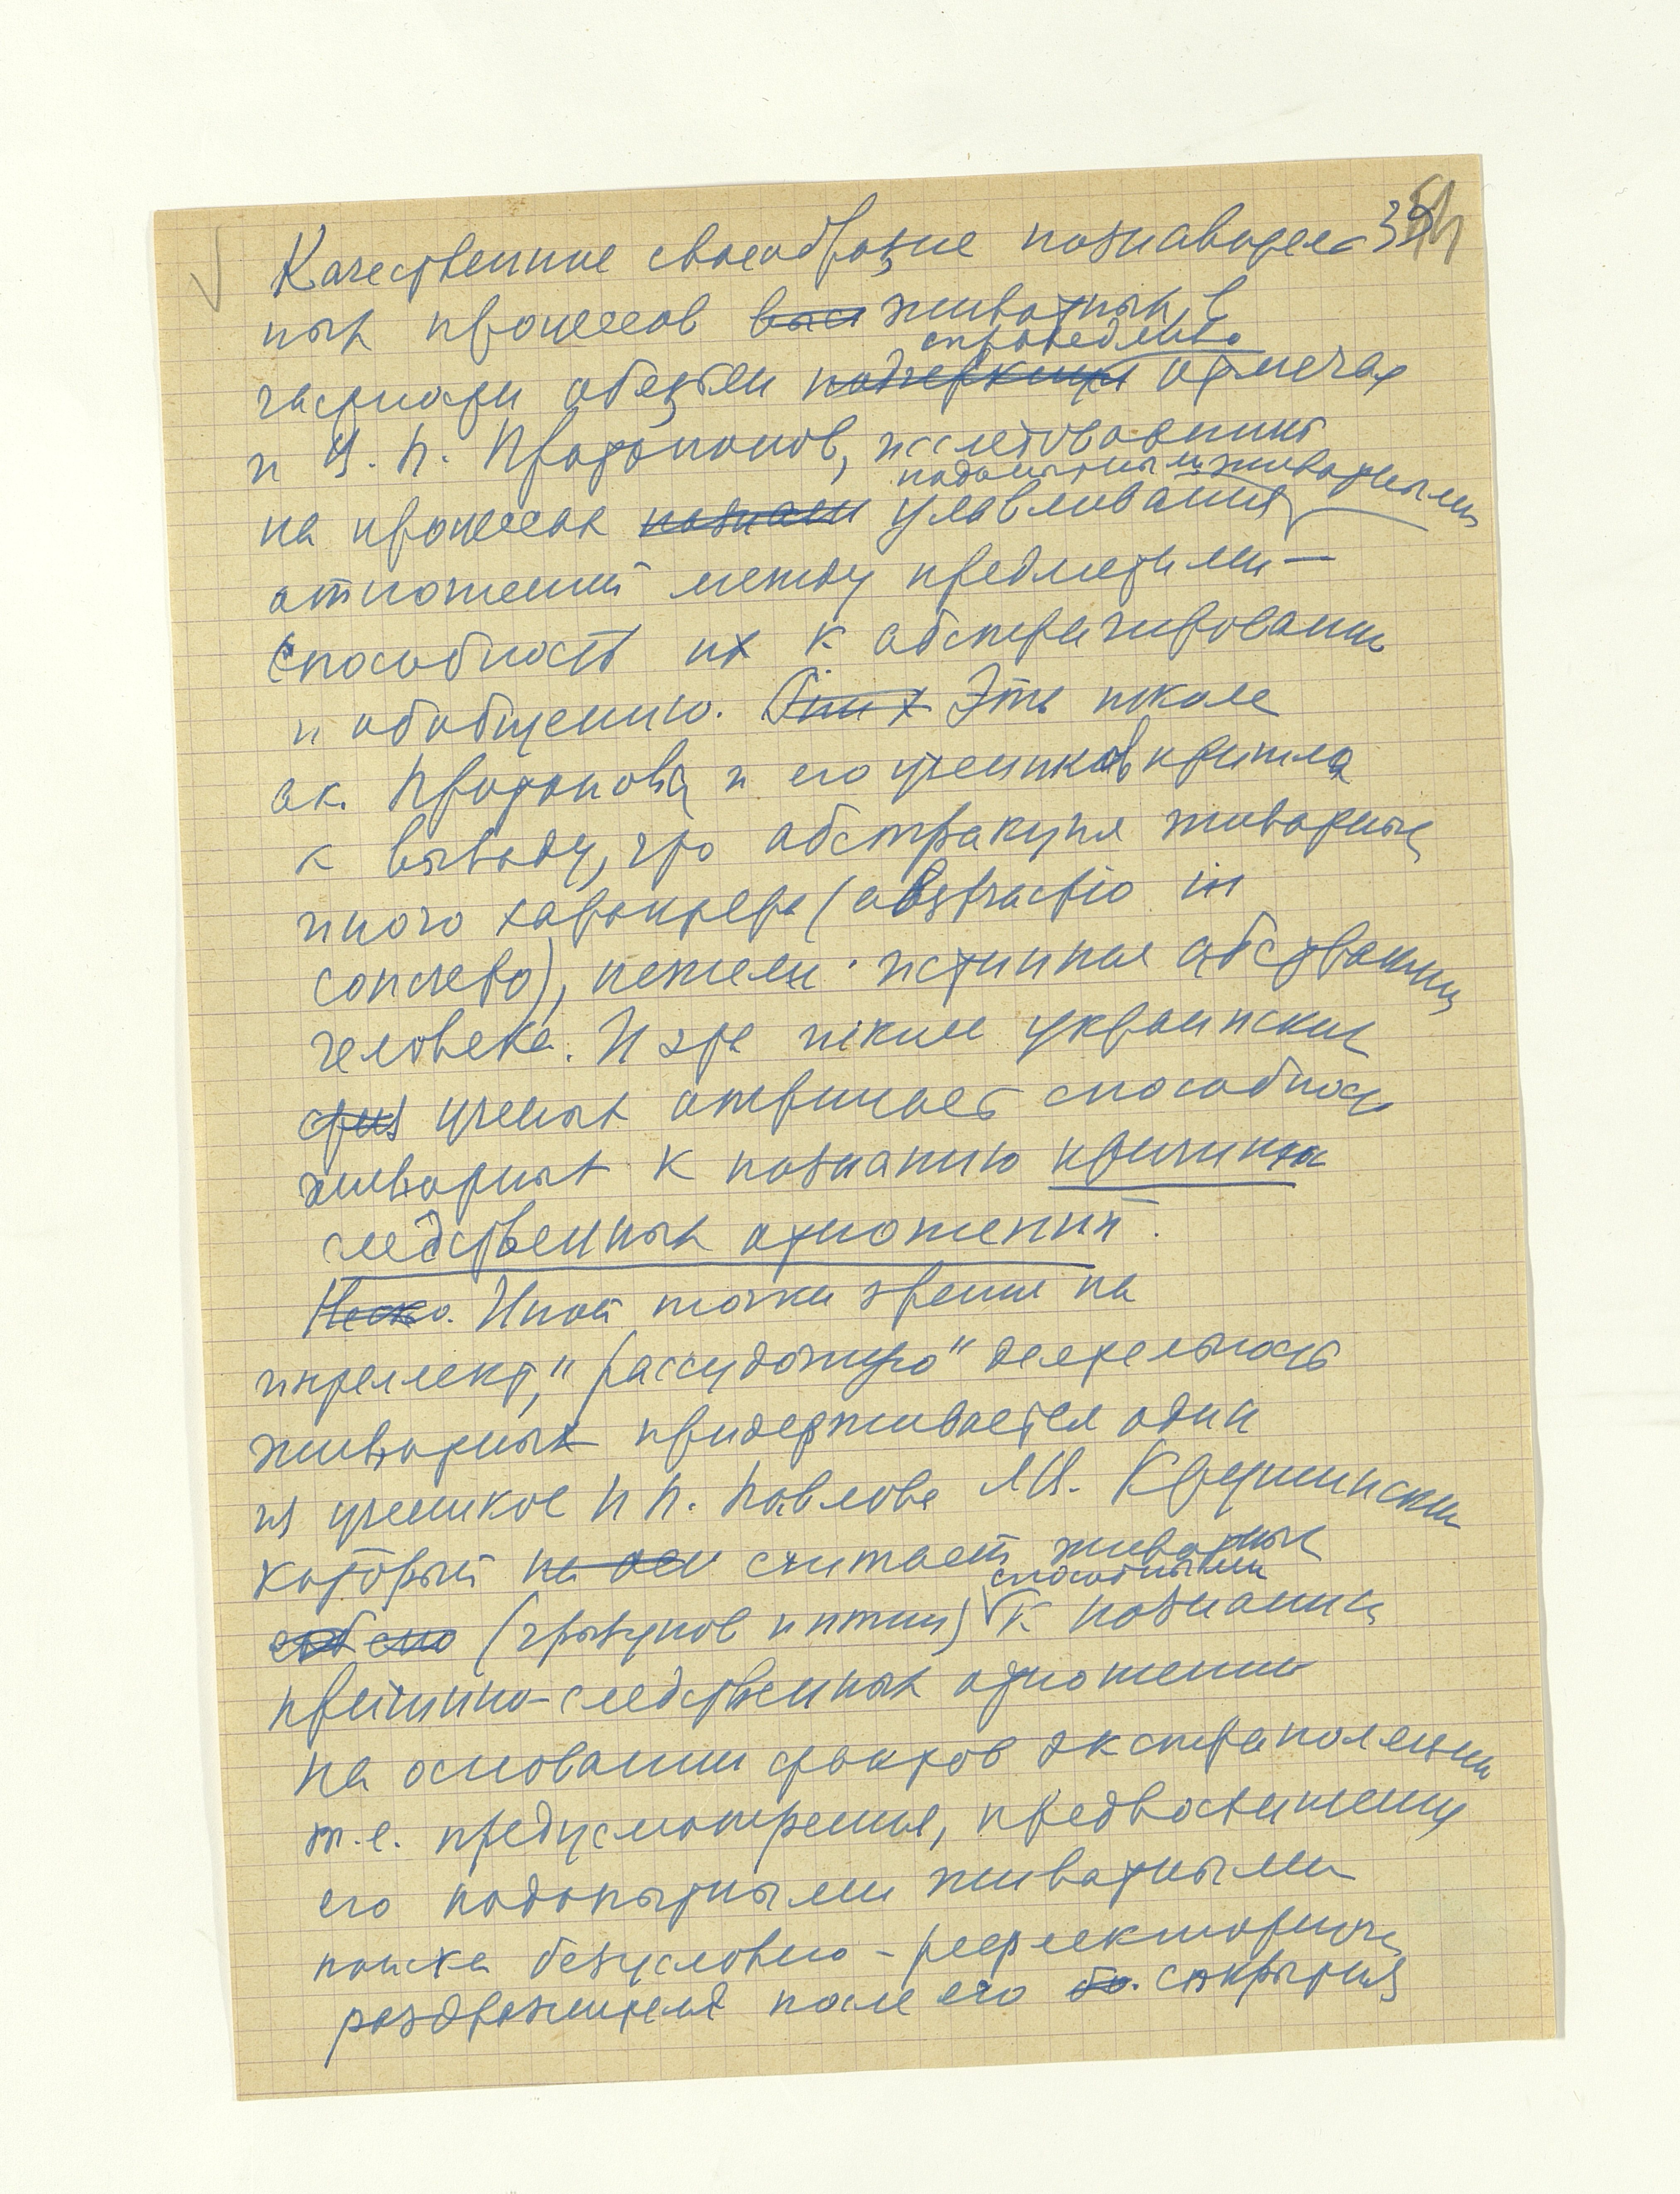 Качественное своеобразие познаватель-
ных процессов животных, в
справедливо
частности обезьян отмечает
и В. П. Протопопов, исследовавший
подопытными животными
на процессах улавливания
отношений между предметами —
способность их к абстрагированию
и обобщению. Эта школа
ак. Протопопова и его учеников пришла
к выводу, что абстракция животных
иного характера (abstractio in
concreto), нежели истинная абстракция
человека. И эта школа украинских
ученых отрицает способность
животных к познанию причинно
следственных отношений.
Иной точки зрения на
интеллект, "рассудочную" деятельность
животных придерживается один
из учеников И П. Павлова Л.В. Крушинский
который считает животных
способными
(грызунов и птиц) к познанию
причинно-следственных отношений
на основании фактов экстраполяции
т.е. предусмотрения, предвосхищения
его подопытными животными
поиска безусловно-рефлекторного
раздражителя после его сокрытия